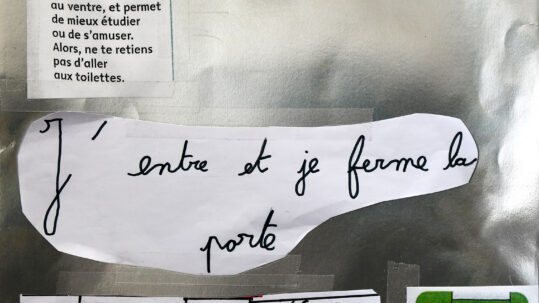 au ventre, et permet
de mieux étudier
ou de s'amuser.
Alors, ne te retiens
pas d'aller
aux toilettes.
J' entre et je ferme la
porte